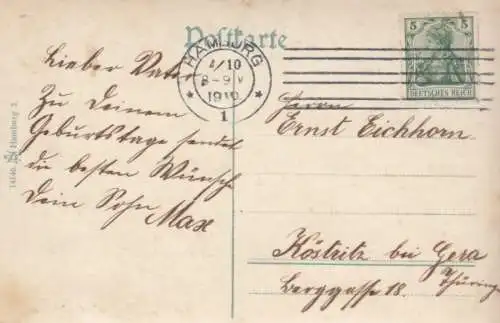 Postkarte
HAMBURG
4/10
8-9 V
1910
* 1 *
5 5
DEUTSCHES REICH
Lieber Vater,
Zu Deinem
Geburtstage sendet
die besten Wünsche
dein Sohn
Max
Herrn
Ernst Eichhorn.
Köstritz bei Gera
Berggasse 18. Thüringen
Hamburg 3.